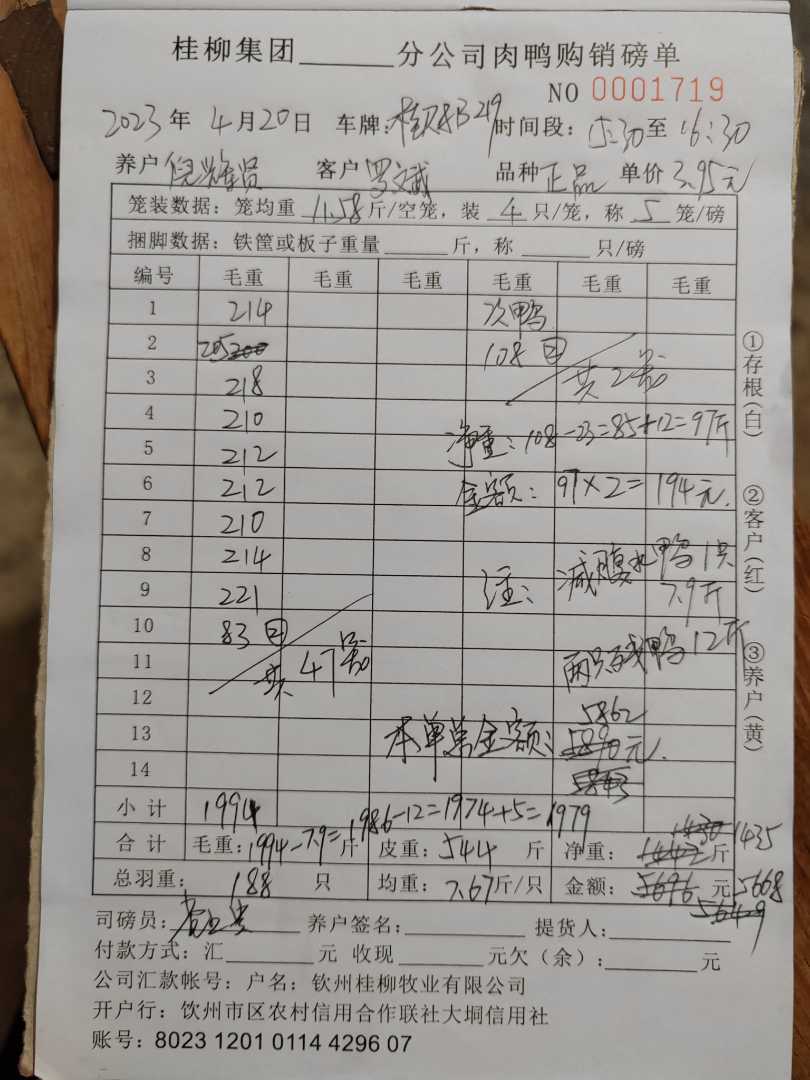 桂柳集团______分公司肉鸭购销磅单
NO 0001719
2023年 4月20日 车牌: 时间段: 15:30至16:30
养户 客户 罗文斌 品种 正品 单价 3.95元
笼装数据: 笼均重 11.58斤/空笼, 装 4 只/笼, 称 5 笼/磅
捆脚数据: 铁筐或板子重量______斤, 称______只/磅
编号 毛重 毛重 毛重 毛重 毛重 毛重
1 214 次鸭
2 205 200 108 ②
3 218 共2笼
4 210 净重: 108-23=85+12=97斤
5 212
6 212 金额: 97×2=194元.
7 210
8 214 注: 减腹水鸭1只
9 221 7.9斤
10 83 ②
11 共47笼 两只残鸭12斤
12 5862
13 本单总金额: 5890元.
14 5843
小计 1994
合计 毛重: 1994-7.9=1986-12=1974+5=1979 斤 皮重: 544 斤 净重: 1442斤 1430 1435
总羽重: 188 只 均重: 7.67斤/只 金额: 5696元 5668
5649
司磅员: 养户签名:______ 提货人:______
付款方式: 汇______元 收现______元欠(余):______元
公司汇款帐号: 户名: 钦州桂柳牧业有限公司
开户行: 钦州市区农村信用合作联社大垌信用社
账号: 8023 1201 0114 4296 07
①存根(白)
②客户(红)
③养户(黄)